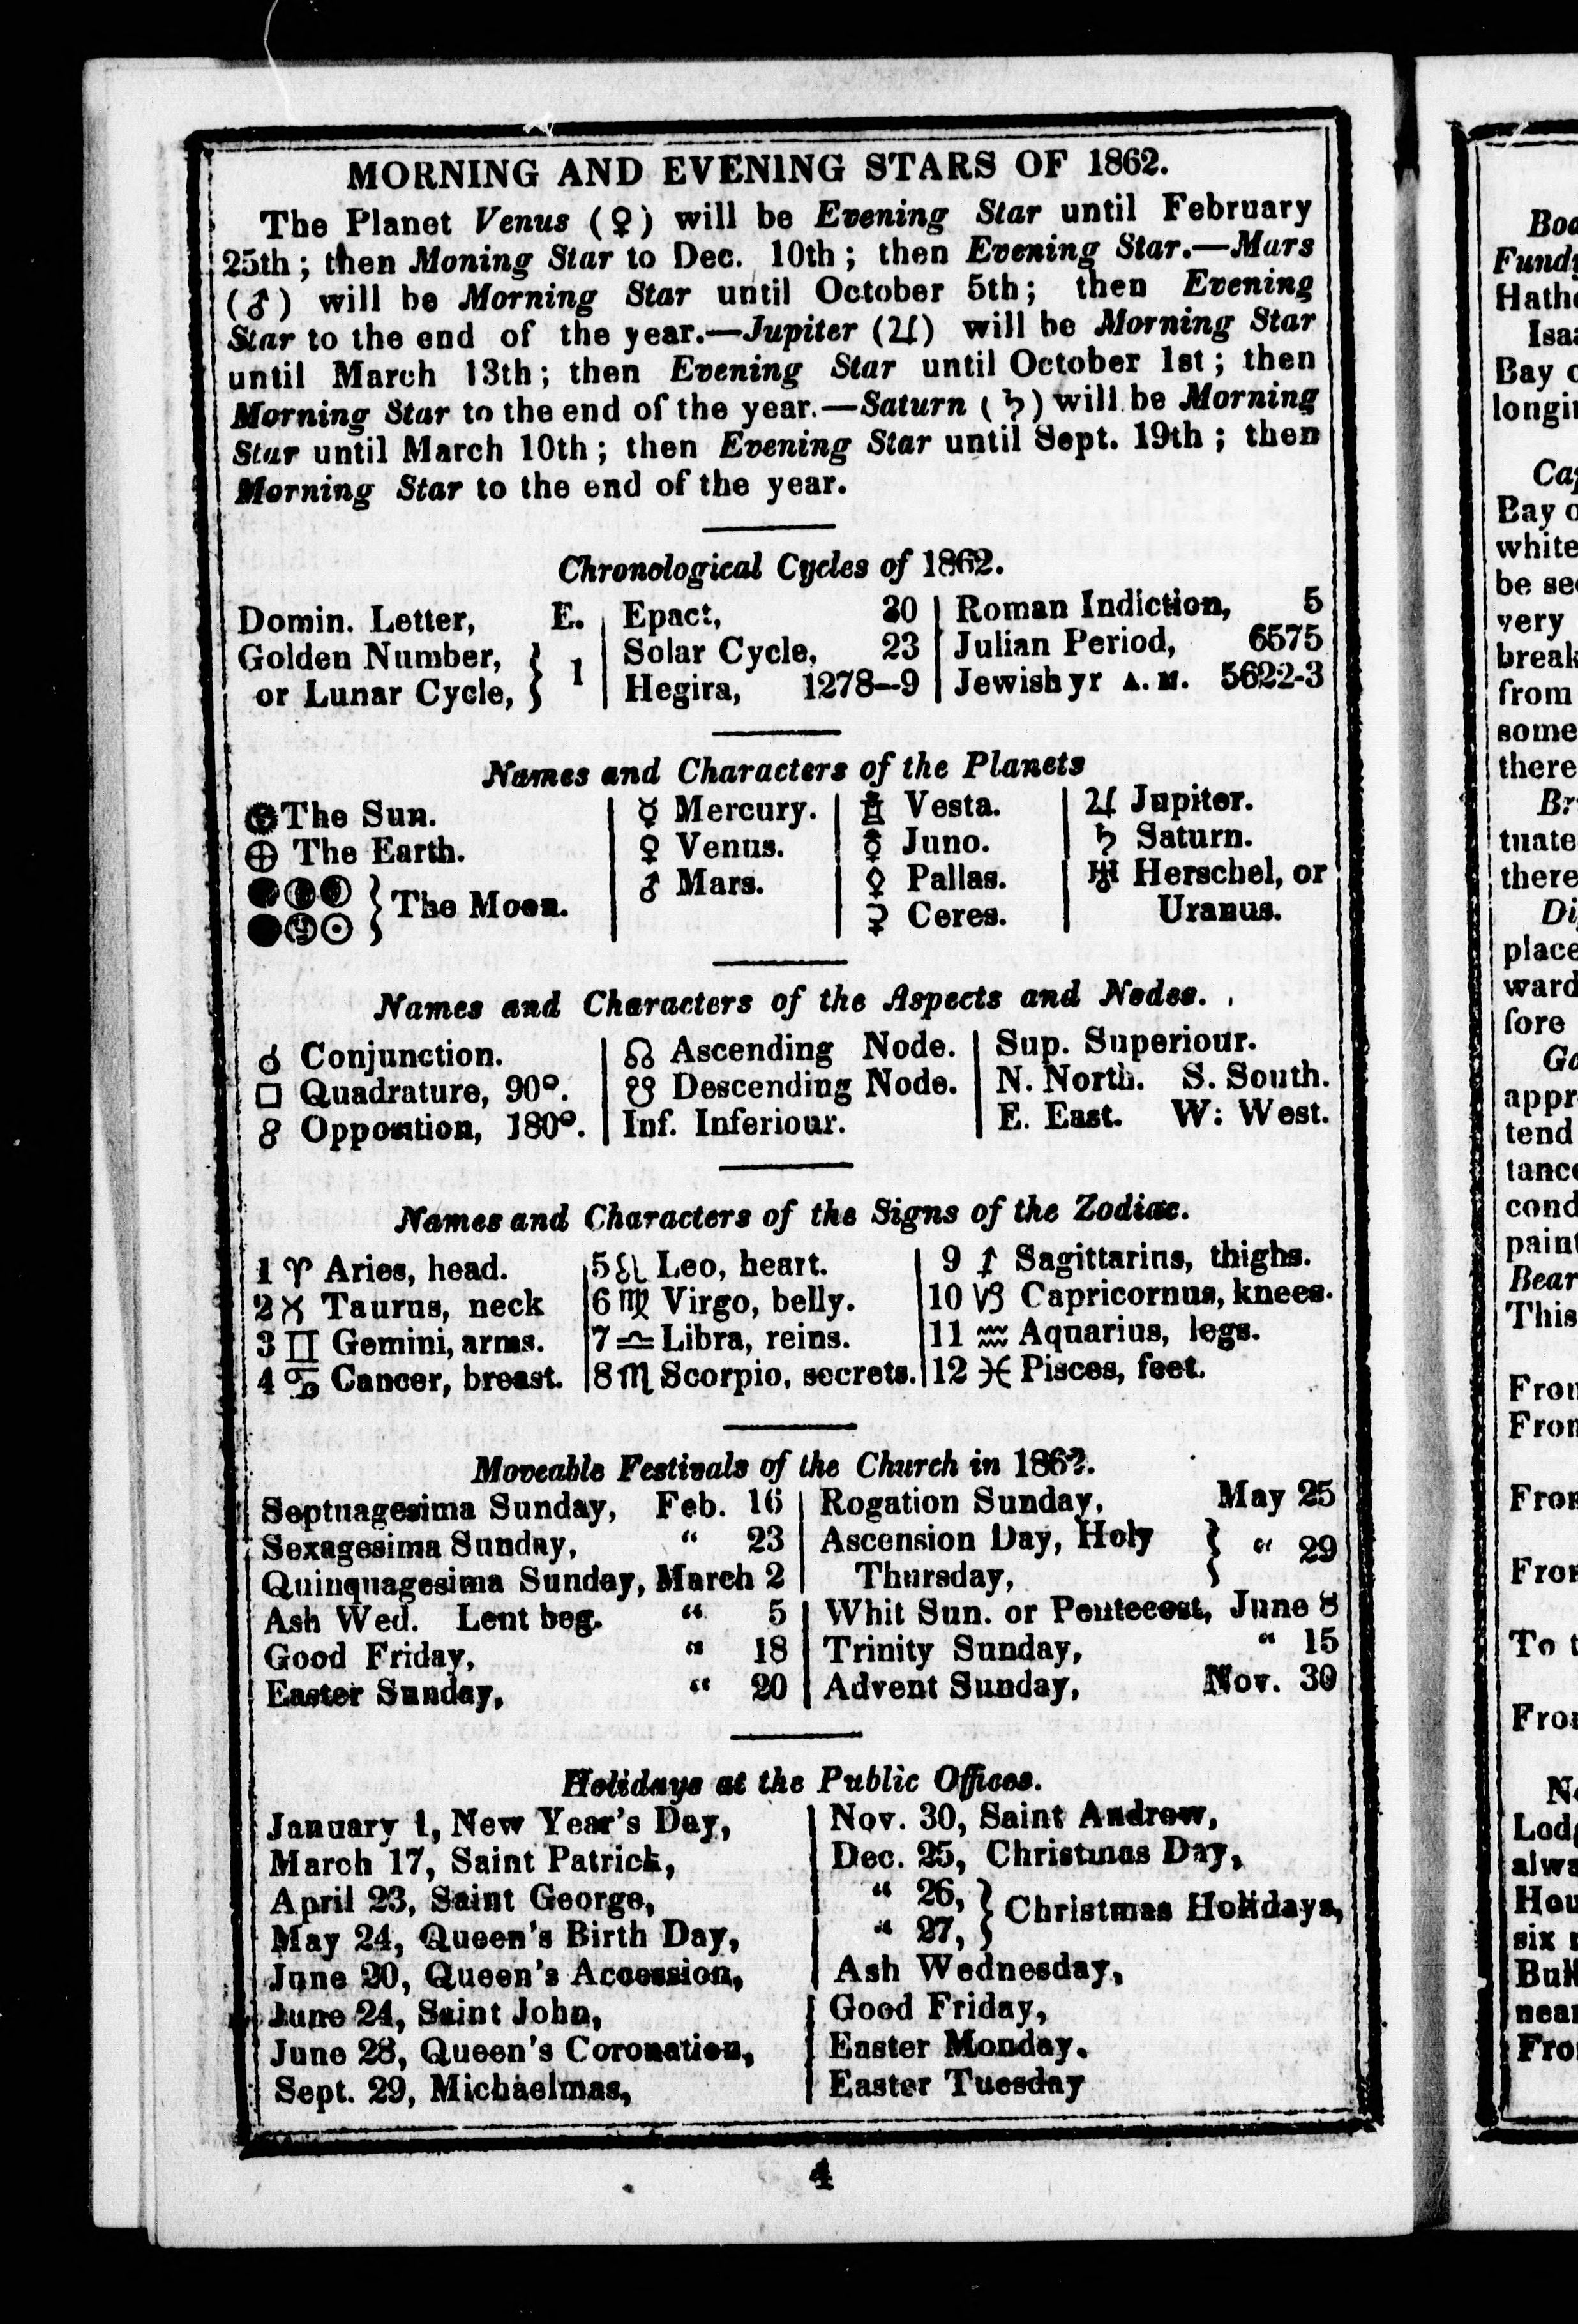 MORNING AND EVENING STARS OF 1862.
The Planet Venus (♀) will be Evening Star until February
25th; then Moning Star to Dec. 10th; then Evening Star.—Mars
(♂) will be Morning Star until October 5th; then Evening
Star to the end of the year.—Jupiter (♃) will be Morning Star
until March 13th; then Evening Star until October 1st; then
Morning Star to the end of the year.—Saturn (♄) will be Morning
Star until March 10th; then Evening Star until Sept. 19th; then
Morning Star to the end of the year.
Chronological Cycles of 1862.
Domin. Letter, E. | Epact, 30 | Roman Indiction, 5
Golden Number, } 1 | Solar Cycle, 23 | Julian Period, 6575
or Lunar Cycle, } | Hegira, 1278–9 | Jewish yr A. M. 5622-3
Names and Characters of the Planets
The Sun. | ☿ Mercury. | Vesta. | ♃ Jupiter.
⊕ The Earth. | ♀ Venus. | Juno. | ♄ Saturn.
The Moon. | ♂ Mars. | Pallas. | ♅ Herschel, or
Ceres. | Uranus.
Names and Characters of the Aspects and Nodes.
☌ Conjunction. | ☊ Ascending Node. | Sup. Superiour.
□ Quadrature, 90°. | ☋ Descending Node. | N. North. S. South.
☍ Opposition, 180°. | Inf. Inferiour. | E. East. W: West.
Names and Characters of the Signs of the Zodiac.
1 ♈ Aries, head. | 5 ♌ Leo, heart. | 9 ♐ Sagittarius, thighs.
2 ♉ Taurus, neck | 6 ♍ Virgo, belly. | 10 ♑ Capricornus, knees.
3 ♊ Gemini, arms. | 7 ♎ Libra, reins. | 11 ♒ Aquarius, legs.
4 ♋ Cancer, breast. | 8 ♏ Scorpio, secrets. | 12 ♓ Pisces, feet.
Moveable Festivals of the Church in 1862.
Septuagesima Sunday, Feb. 16 | Rogation Sunday, May 25
Sexagesima Sunday, “ 23 | Ascension Day, Holy } “ 29
Quinquagesima Sunday, March 2 | Thursday, }
Ash Wed. Lent beg. “ 5 | Whit Sun. or Pentecost, June 8
Good Friday, “ 18 | Trinity Sunday, “ 15
Easter Sunday, “ 20 | Advent Sunday, Nov. 30
Holidays at the Public Offices.
January 1, New Year's Day, | Nov. 30, Saint Andrew,
March 17, Saint Patrick, | Dec. 25, Christmas Day,
April 23, Saint George, | “ 26, } Christmas Holidays,
May 24, Queen's Birth Day, | “ 27, }
June 20, Queen's Accession, | Ash Wednesday,
June 24, Saint John, | Good Friday,
June 28, Queen's Coronation, | Easter Monday.
Sept. 29, Michaelmas, | Easter Tuesday
4